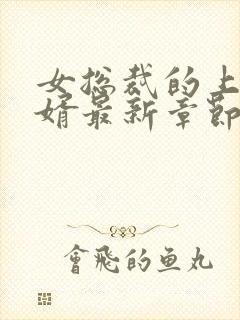 女总裁的上
婿最新章節
會飛的鱼丸